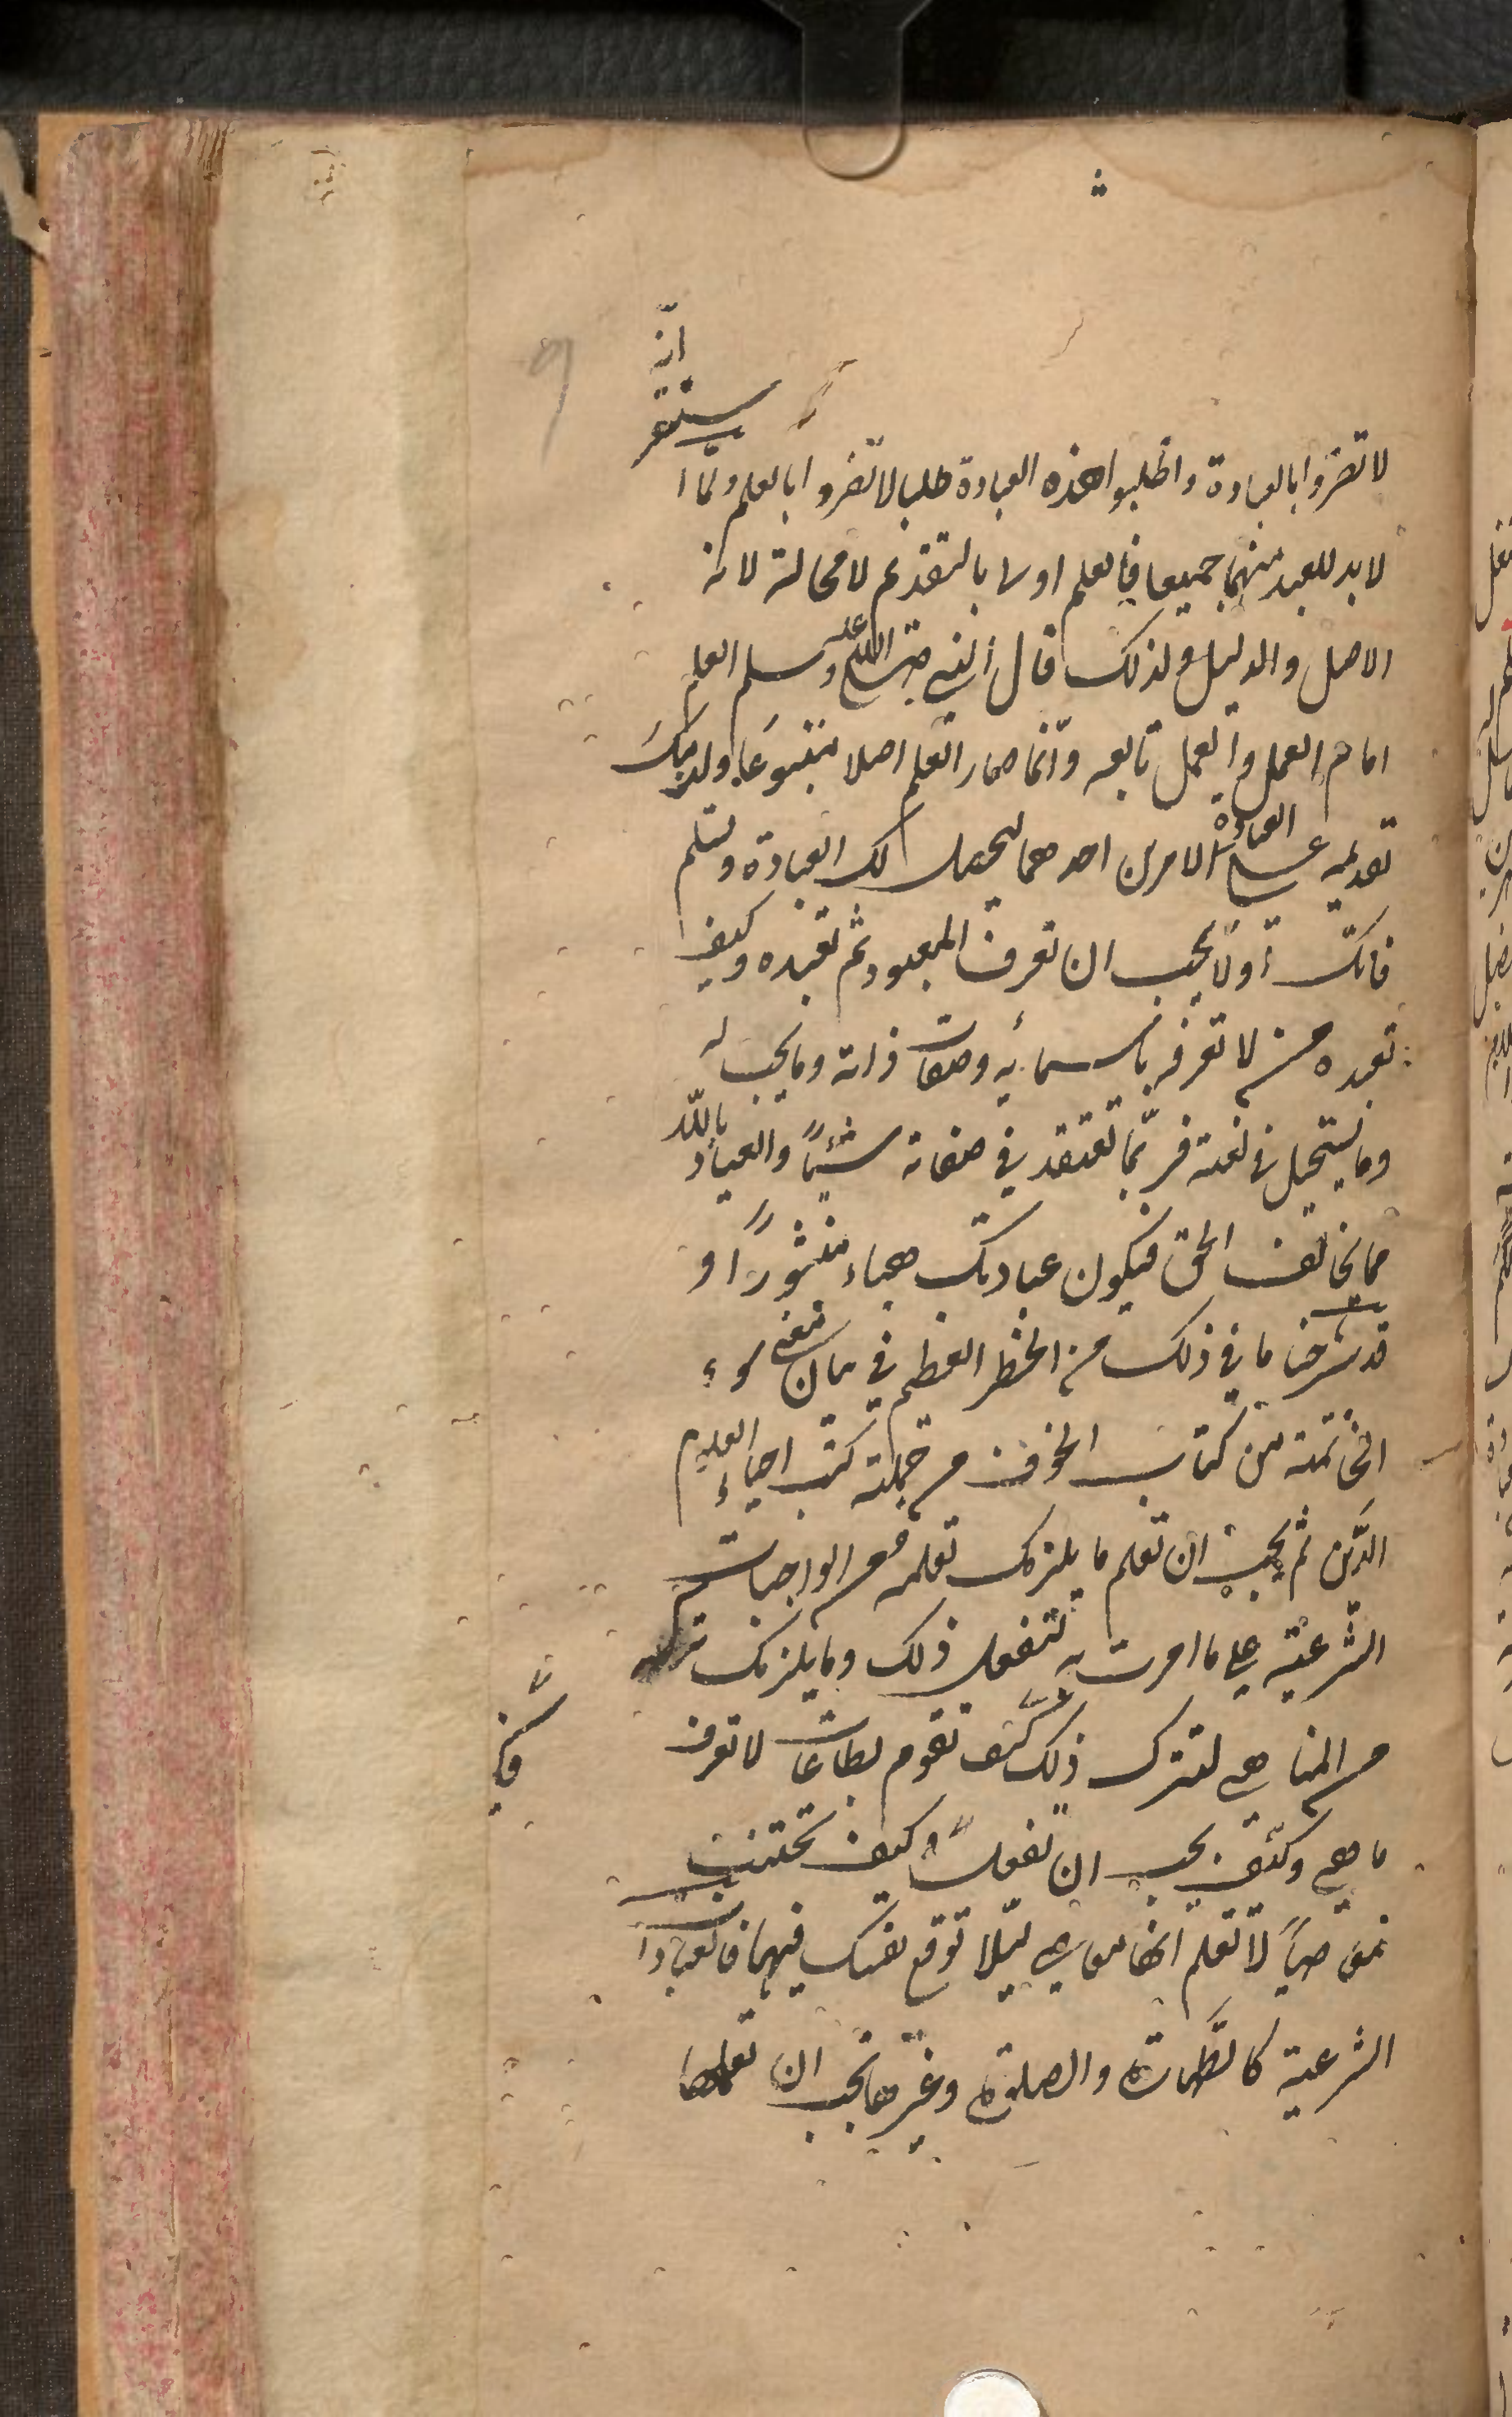 انه
ستقر
لا تضروا بالعبادة واطلبوا هذه العبادة طلبا لا تضروا بالعلم ولما ا
لا بد للعبد منهما جميعا فالعلم اولى بالتقديم لا محالة لانه
الاصل والدليل ولذلك قال النبي صلى الله عليه وسلم العلم
امام العمل والعمل تابعه وانما صار العلم اصلا متبوعا ولزمك
تقديمه على العبادة لامرين احدهما ليحصل لك العبادة وتسلم
فانك اولا يجب ان تعرف المعبود ثم تعبده وكيف
تعبده من لا تعرفه باسمائه وصفات ذاته وما يجب له
وما يستحيل في نعته فربما تعتقد في صفاته شيئا والعياذ بالله
مما يخالف الحق فيكون عبادتك هباء منثورا و
قد شرحنا ما في ذلك من الخطر العظيم في بيان معنى سوء
الخاتمة من كتاب الخوف من جملة كتب احياء العلوم
الدين ثم يجب ان تعلم ما يلزمك تعلمه من الواجبات
الشرعية على ما امرت به لتفعل ذلك وما يلزمك تركه
من المناهي لتترك ذلك كيف تقوم بطاعات لا تعرف
ما هي وكيف يجب ان تفعل وكيف تجتنب
معاصيا لا تعلم انها معاصي ليلا توقع نفسك فيها فالعبادا
الشرعية كالطهارة والصلوة وغيرها يجب ان تعلمها